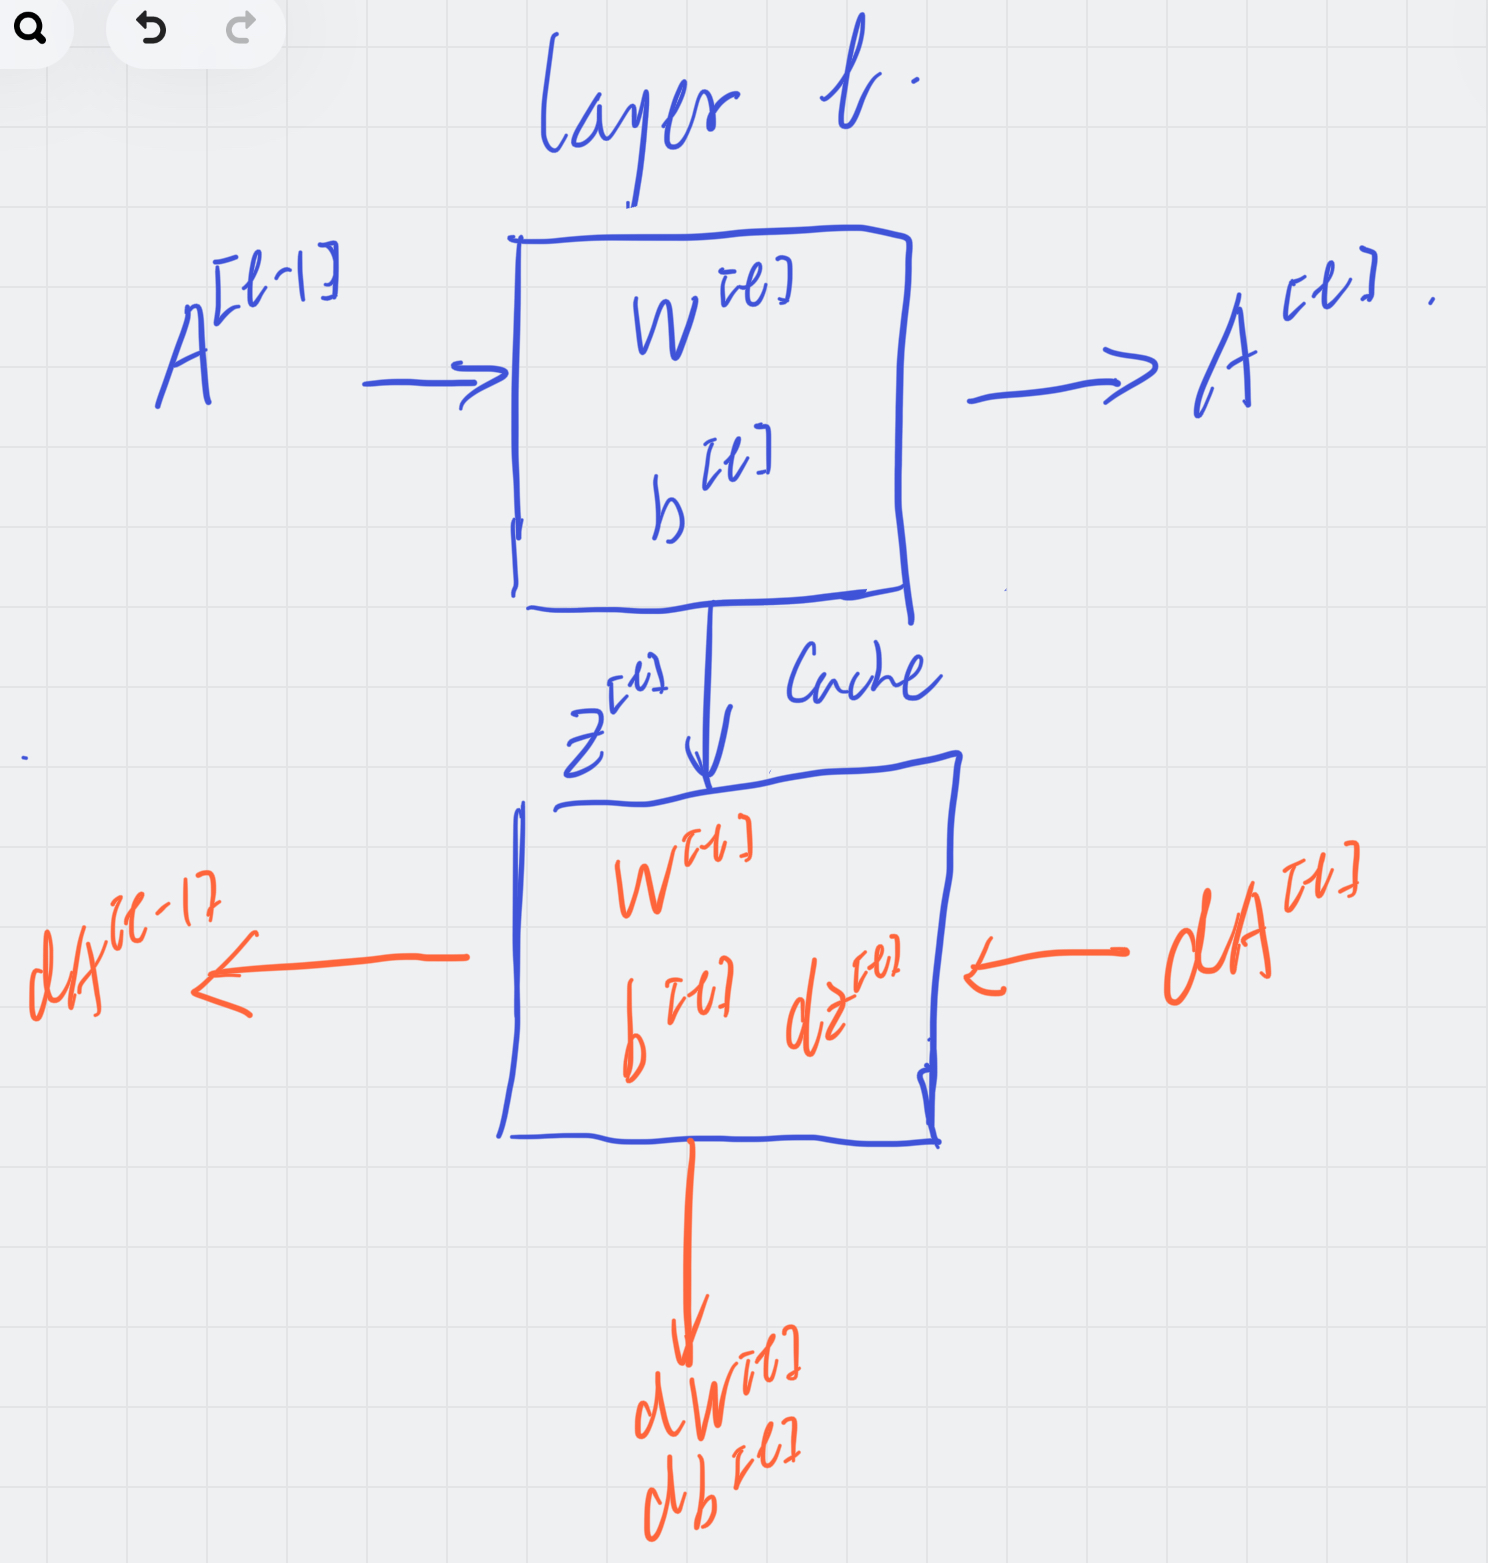 layer l.
A^[l-1]
W^[l]
A^[l].
b^[l]
Z^[l]
Cache
W^[l]
dA^[l-1]
b^[l]
dz^[l]
dA^[l]
dW^[l]
db^[l]